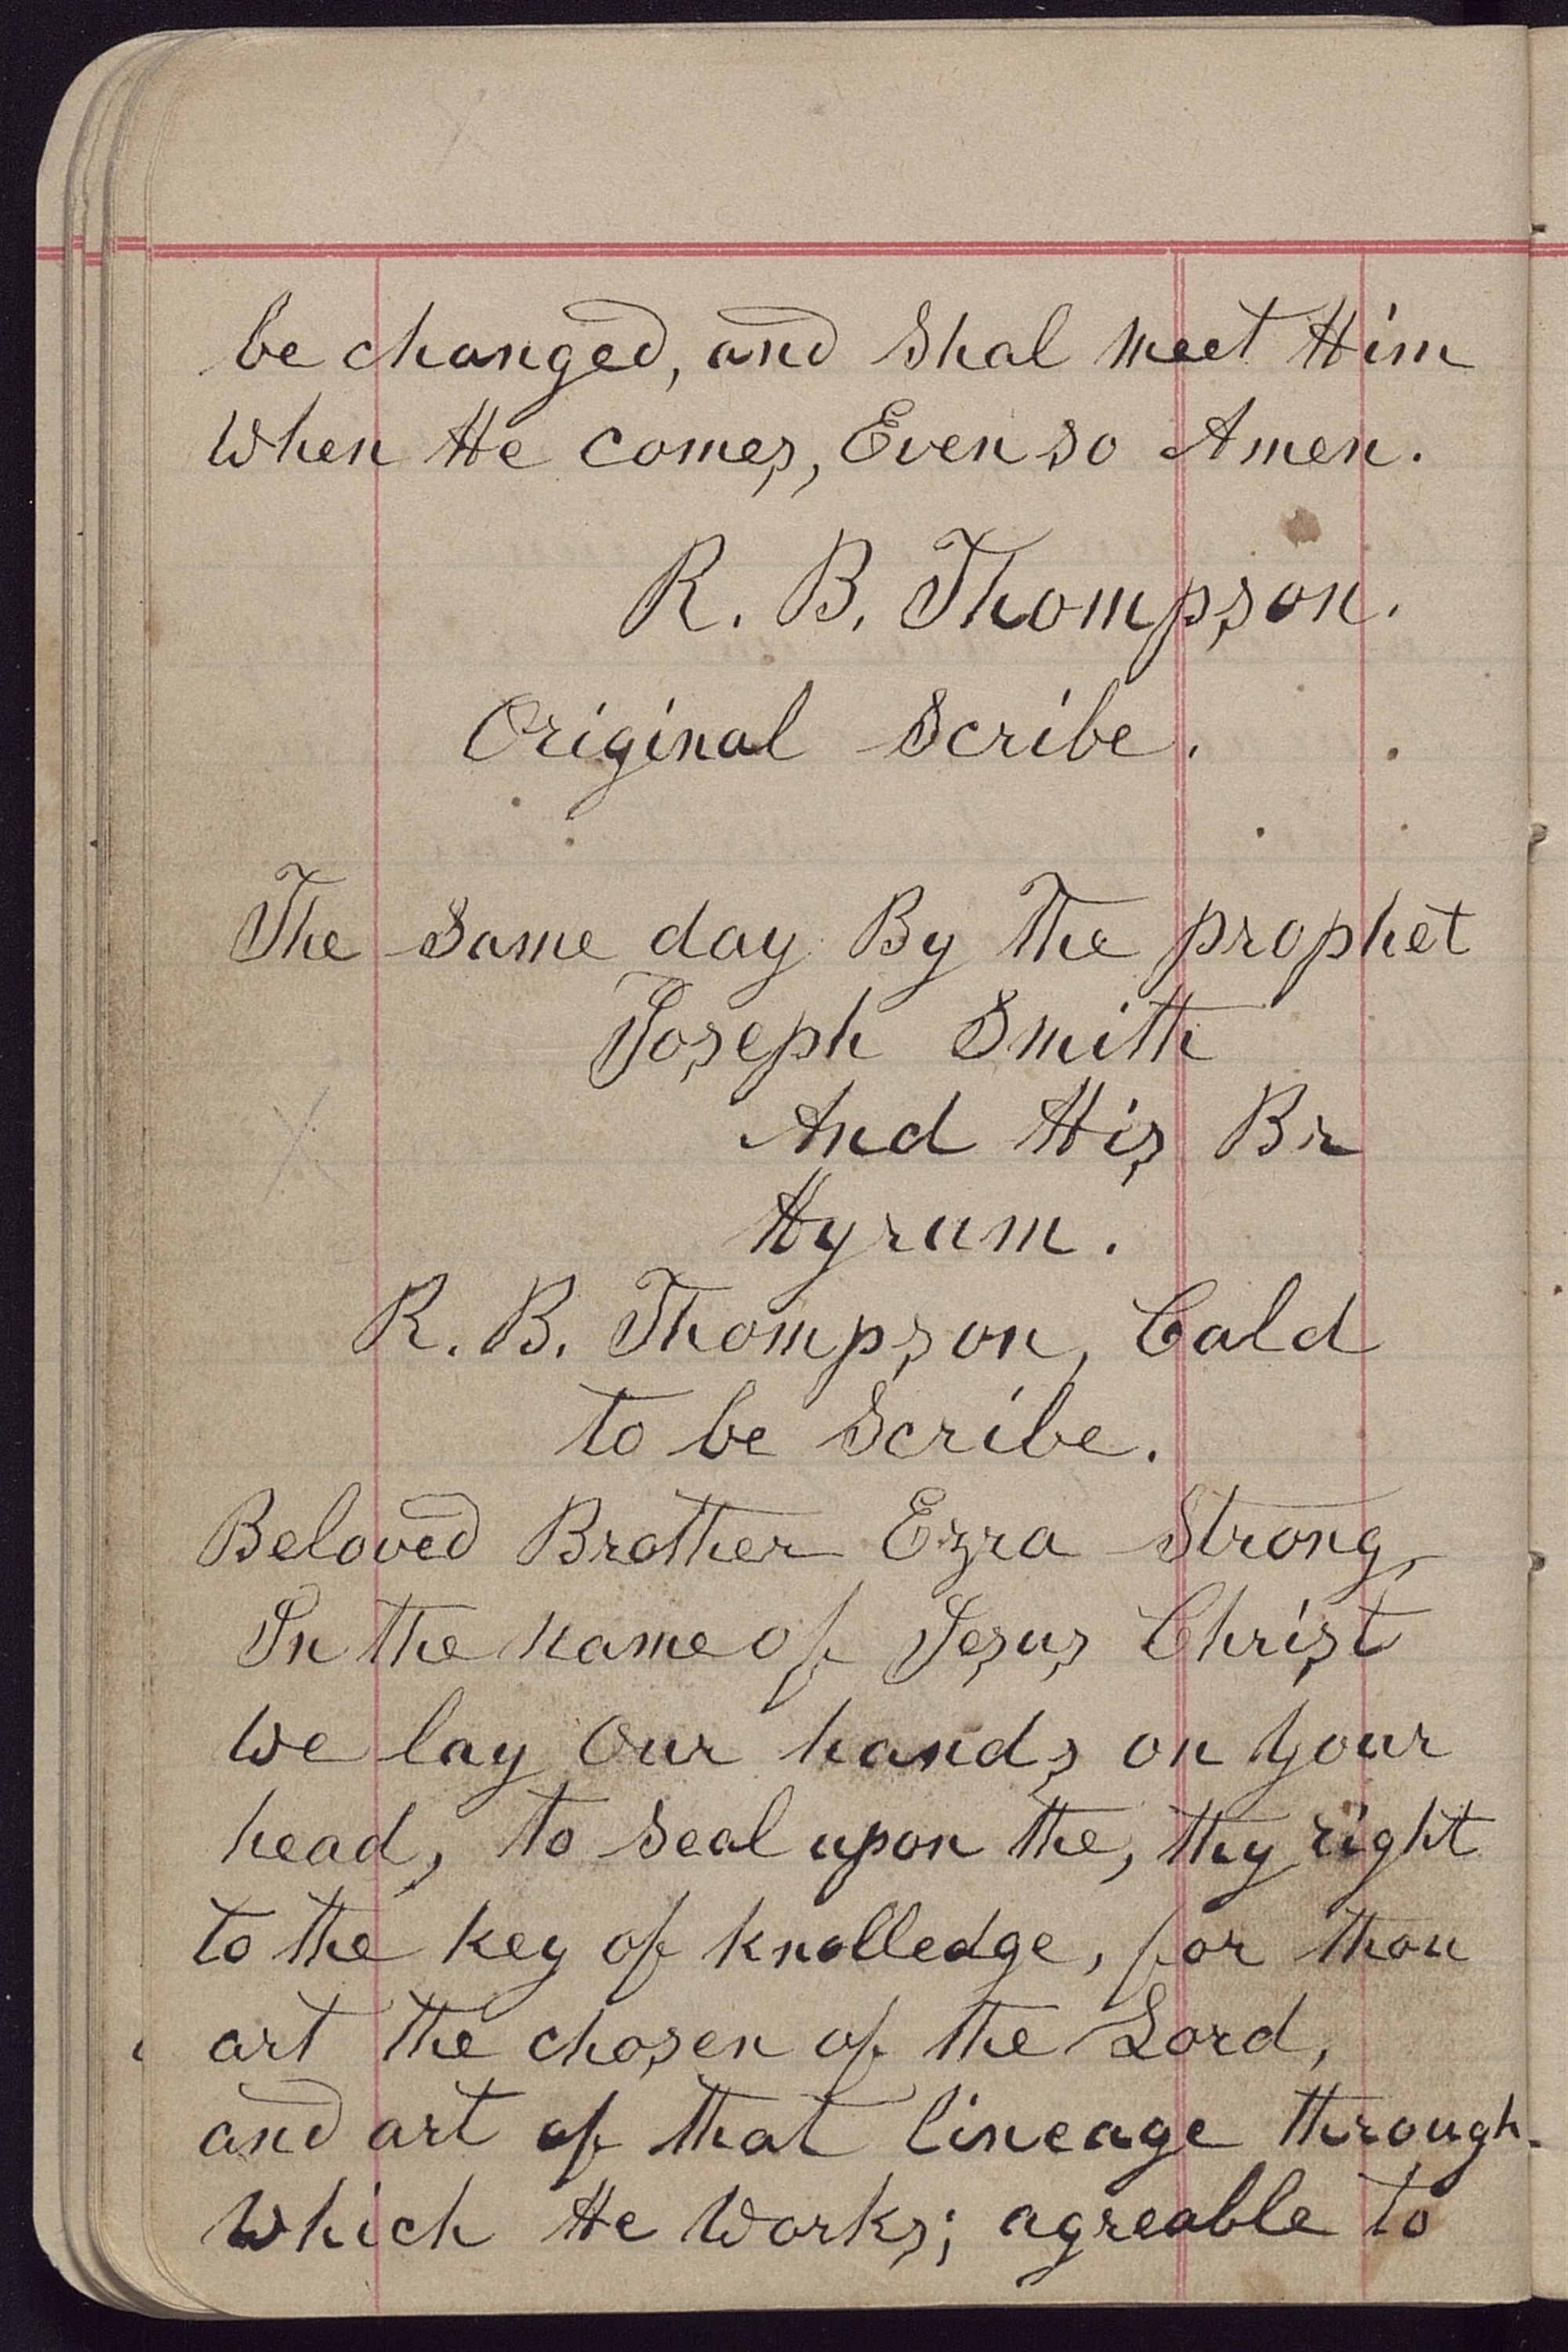 be changed, and Shal meet Him
When He comes, Even so Amen.
R. B. Thompson.
Original Scribe.
The Same day By The prophet
Joseph Smith
And His Br
Hyrum.
R. B. Thompson, Cald
to be Scribe.
Beloved Brother Ezra Strong,
In the name of Jesus Christ
We lay Our hands on Your
head, to Seal upon the, thy right
to the key of knolledge, for thou
art the chosen of the Lord,
and art of that lineage through
Which He Works; agreable to